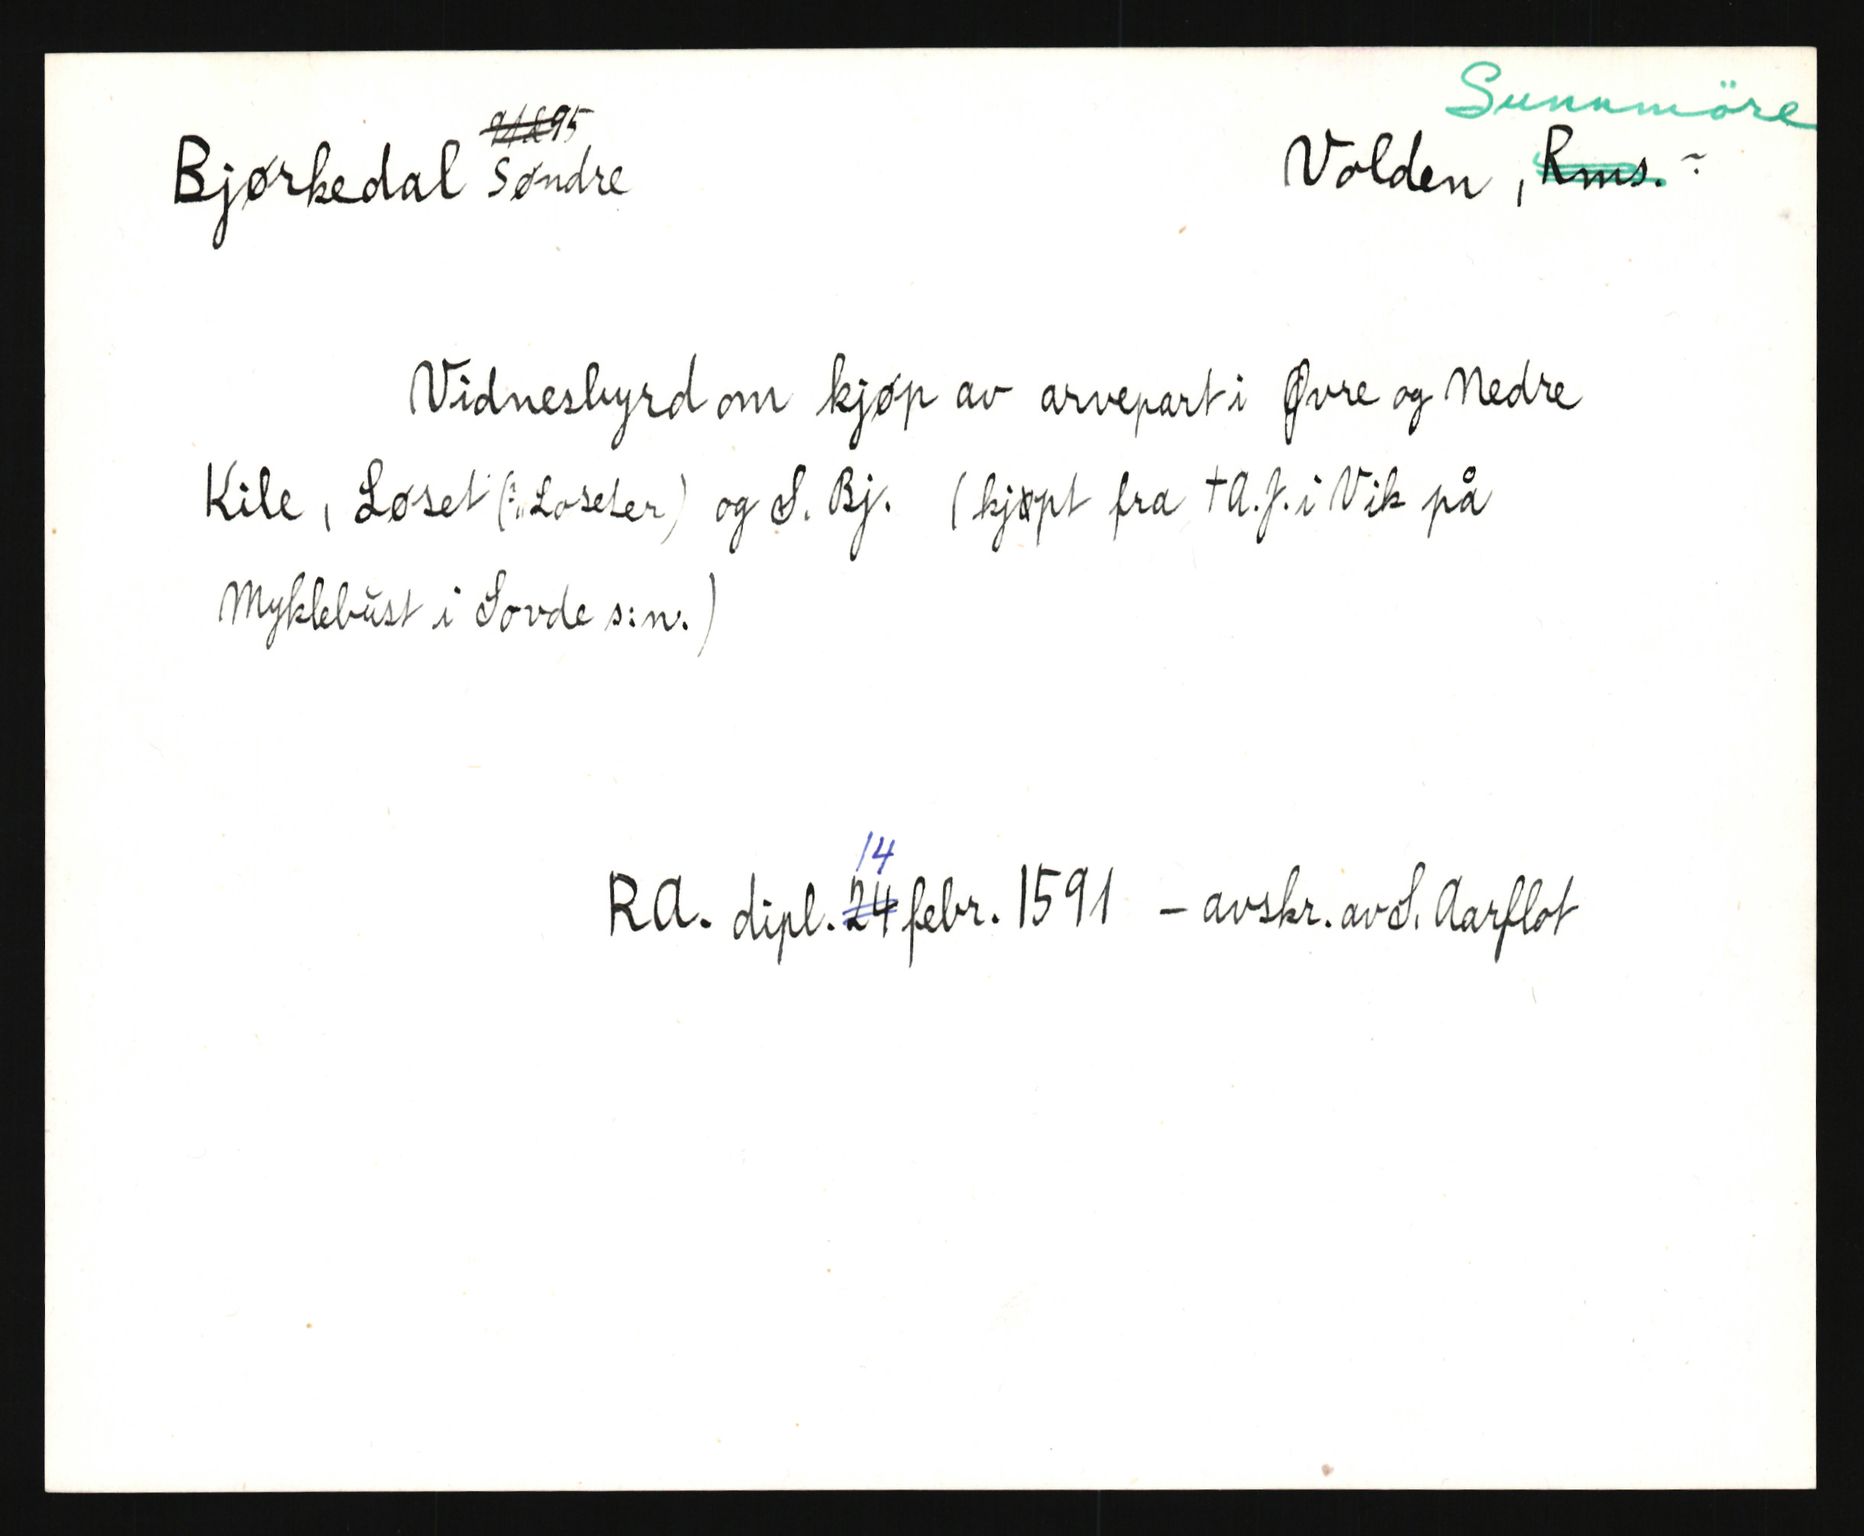 Sunnmöre
95
Bjørkedal Søndre Volden, Rms.
Vidnesbyrd om kjøp av arvepart i Øvre og Nedre
Kile, Løset (: "Loseter) og S. Bj. (kjøpt fra †A.J. i Vik på
Myklebŭst i Sovde s:n:)
14
RA. dipl. 24 febr. 1591 – avskr. av S. Aarflot